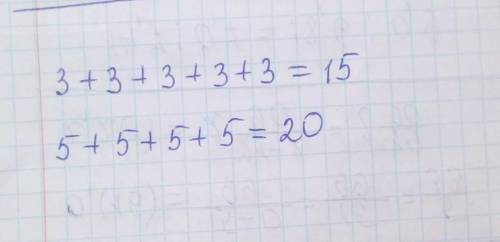 3 + 3 + 3 + 3 + 3 = 15
5 + 5 + 5 + 5 = 20